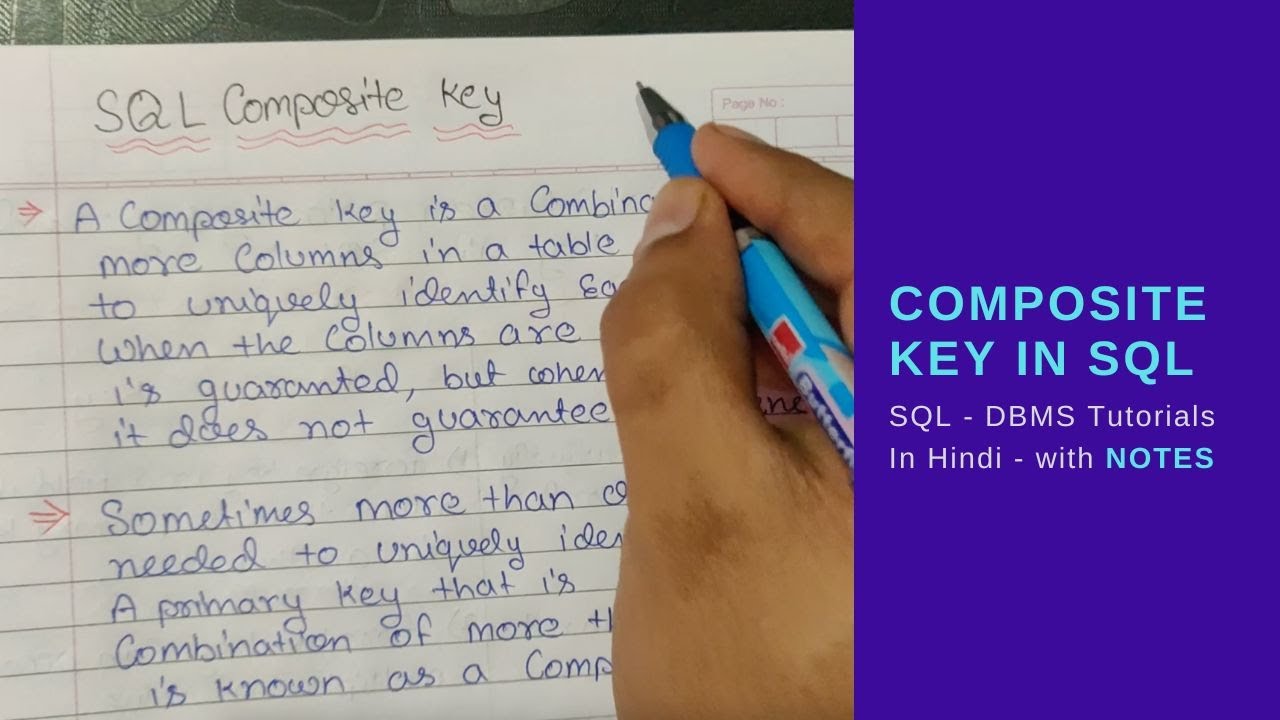 SQL Composite key
Page No :
A Composite key is a
more Columns in a table
to uniquely identify
when the Columns are
is guaranted, but when
it does not guarantee
Sometimes more than
needed to uniquely
A primary key that is
Combination of more
is known as a
COMPOSITE
KEY IN SQL
SQL - DBMS Tutorials
In Hindi - with NOTES